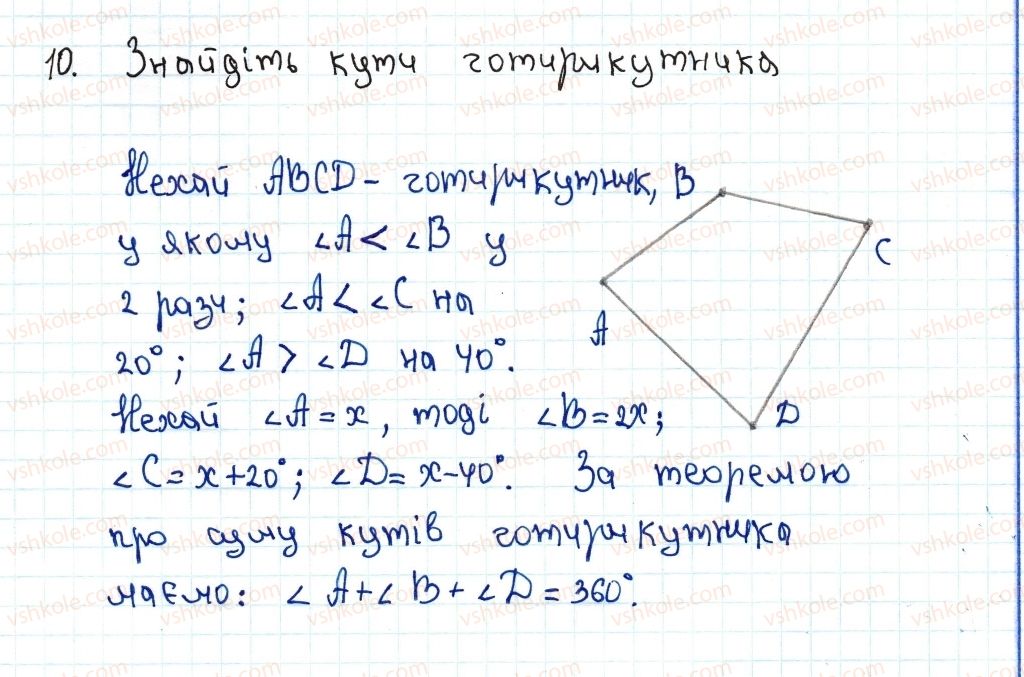 10. Знайдіть кути чотирикутника
Нехай ABCD - чотирикутник,
у якому ∠A < ∠B у
2 рази; ∠A < ∠C на
20°; ∠A > ∠D на 40°.
Нехай ∠A = x, тоді ∠B = 2x;
∠C = x + 20°; ∠D = x - 40°. За теоремою
про суму кутів чотирикутника
маємо: ∠A + ∠B + ∠D = 360°.
B
C
A
D
vshkole.com